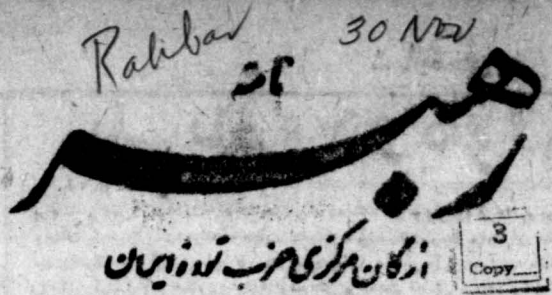 Rahbar 30 Nov
نامه
رهبر
ارگان مرکزی حزب توده ایران
3
Copy